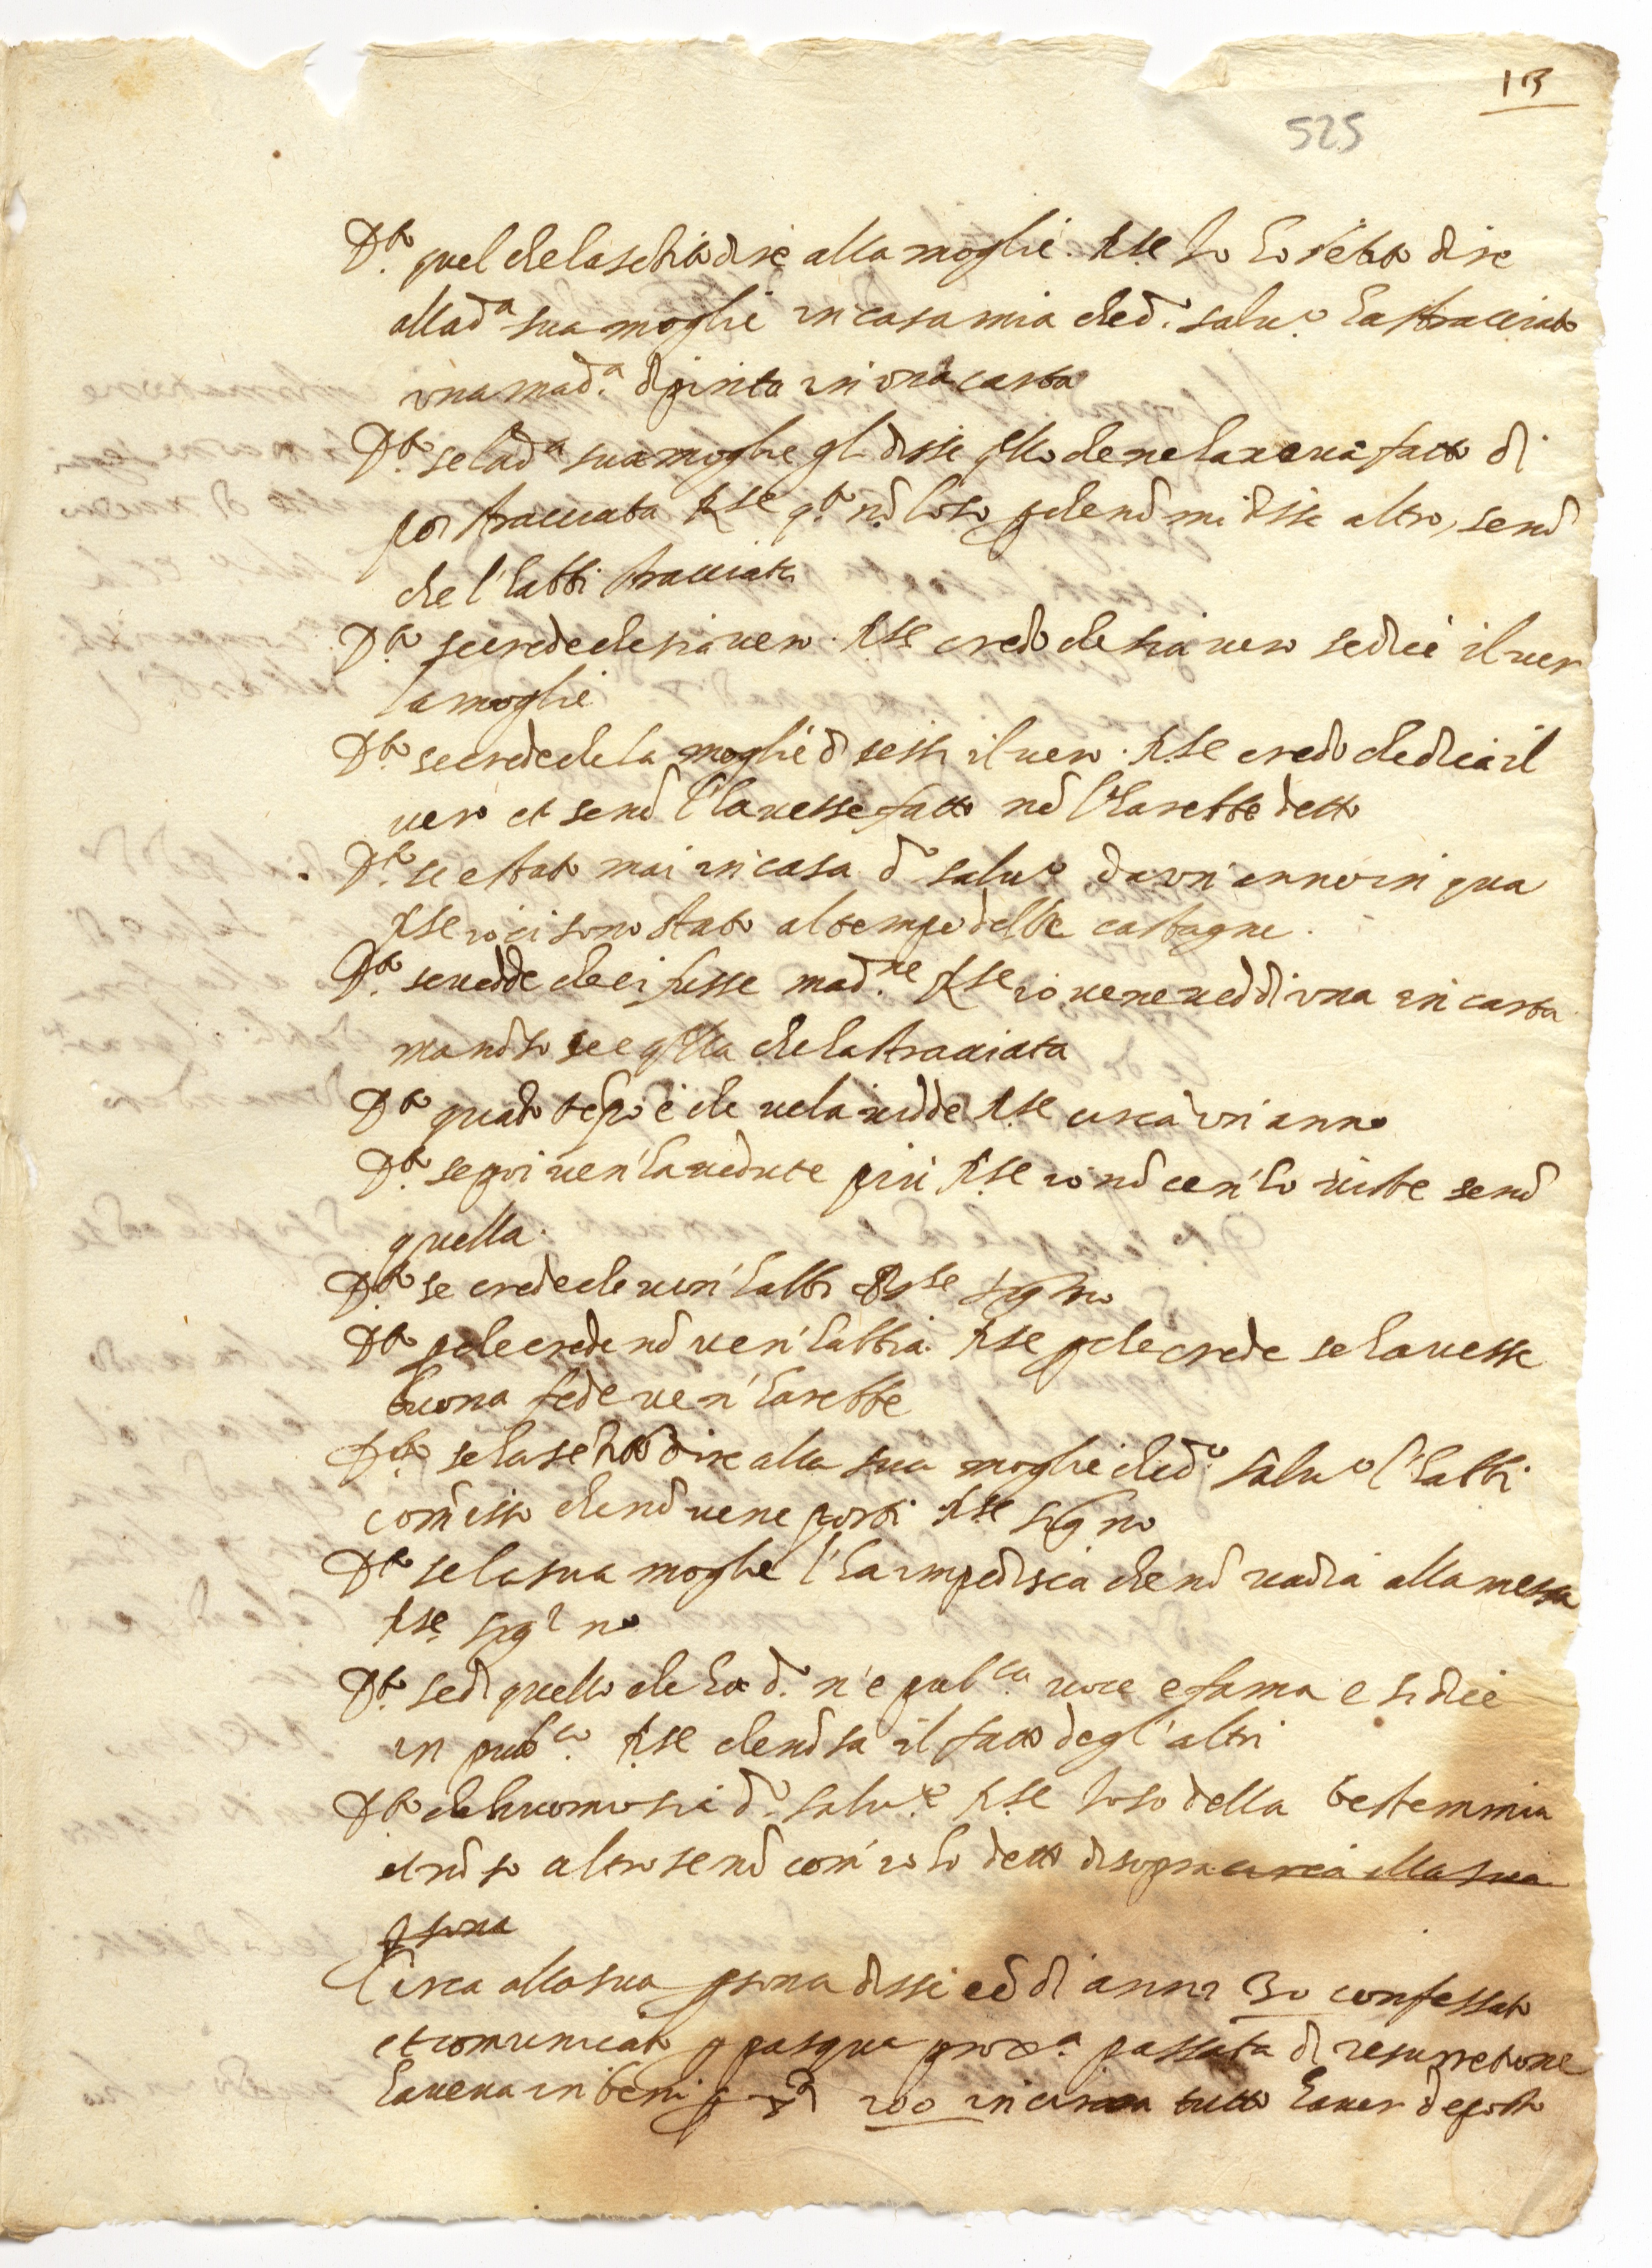 13
525
D.to quel che la sētito dire alla moglie. R.se Io ho sētito dire
alla d.a sua moglie in casa mia che d.o salu.e ha stracciato
una mad.a dipinta in una carta
D.to se la d.a sua moglie gli disse q̄llo che ne haueua fatto di
poi stracciata R.se q.to nō lo so ꝑche nō mi disse altro, senō
che l'habbi stracciata
D.to se crede che sia uero. R.se credo che sia uero se dice il uer
la moglie
D.to se crede che la moglie dicessi il uero. R.se credo che dica il
uero et se nō l'hauesse fatto nō l'harebbe detto
D.to se e stato mai in casa d.o salu.e da un' anno in qua
R.se io ci sono stato al tempo delle castagne.
D.to se uedde che ci fusse mad.ne R.se io ue ne ueddi una in carta
ma nō so se e q̄lla che ha stracciata
D.to quāto tēpo è che ue la uidde R.se circa un' anno
D.to se poi uen' ha uedute più R.se io nō cen' ho uiste senō
quella.
D.to se crede che uen' habbi R.se sig no
D.to ꝑche crede nō uen' habbia. R.se ꝑche crede se hauesse
buona fede uen' harebbe
D.to se ha sētito dire alla sua moglie che d.o salu.e l'habbi
com̄esso che nō ue ne porti R.se sig no
D.to se la sua moglie l'ha impedisca che nō uadia alla messa
R.se sig.r no
D.to se di quello che ha d.o n'è pub.ca uoce e fama e si dice
in pub.co R.se che nō sa il fatto degl' altri
D.to che huomo sia d.o salu.e R.se lo so della bestemmia
et nō so altro senō com' io ho detto di sopra circa alla sua
ꝑsona
Circa alla sua ꝑsona dissi eē di anni 30 confessato
et comunicato ꝑ pasqua prox.a passata di resurretione
haueua in beni ꝑ 200 in circa tutto hauer deposto